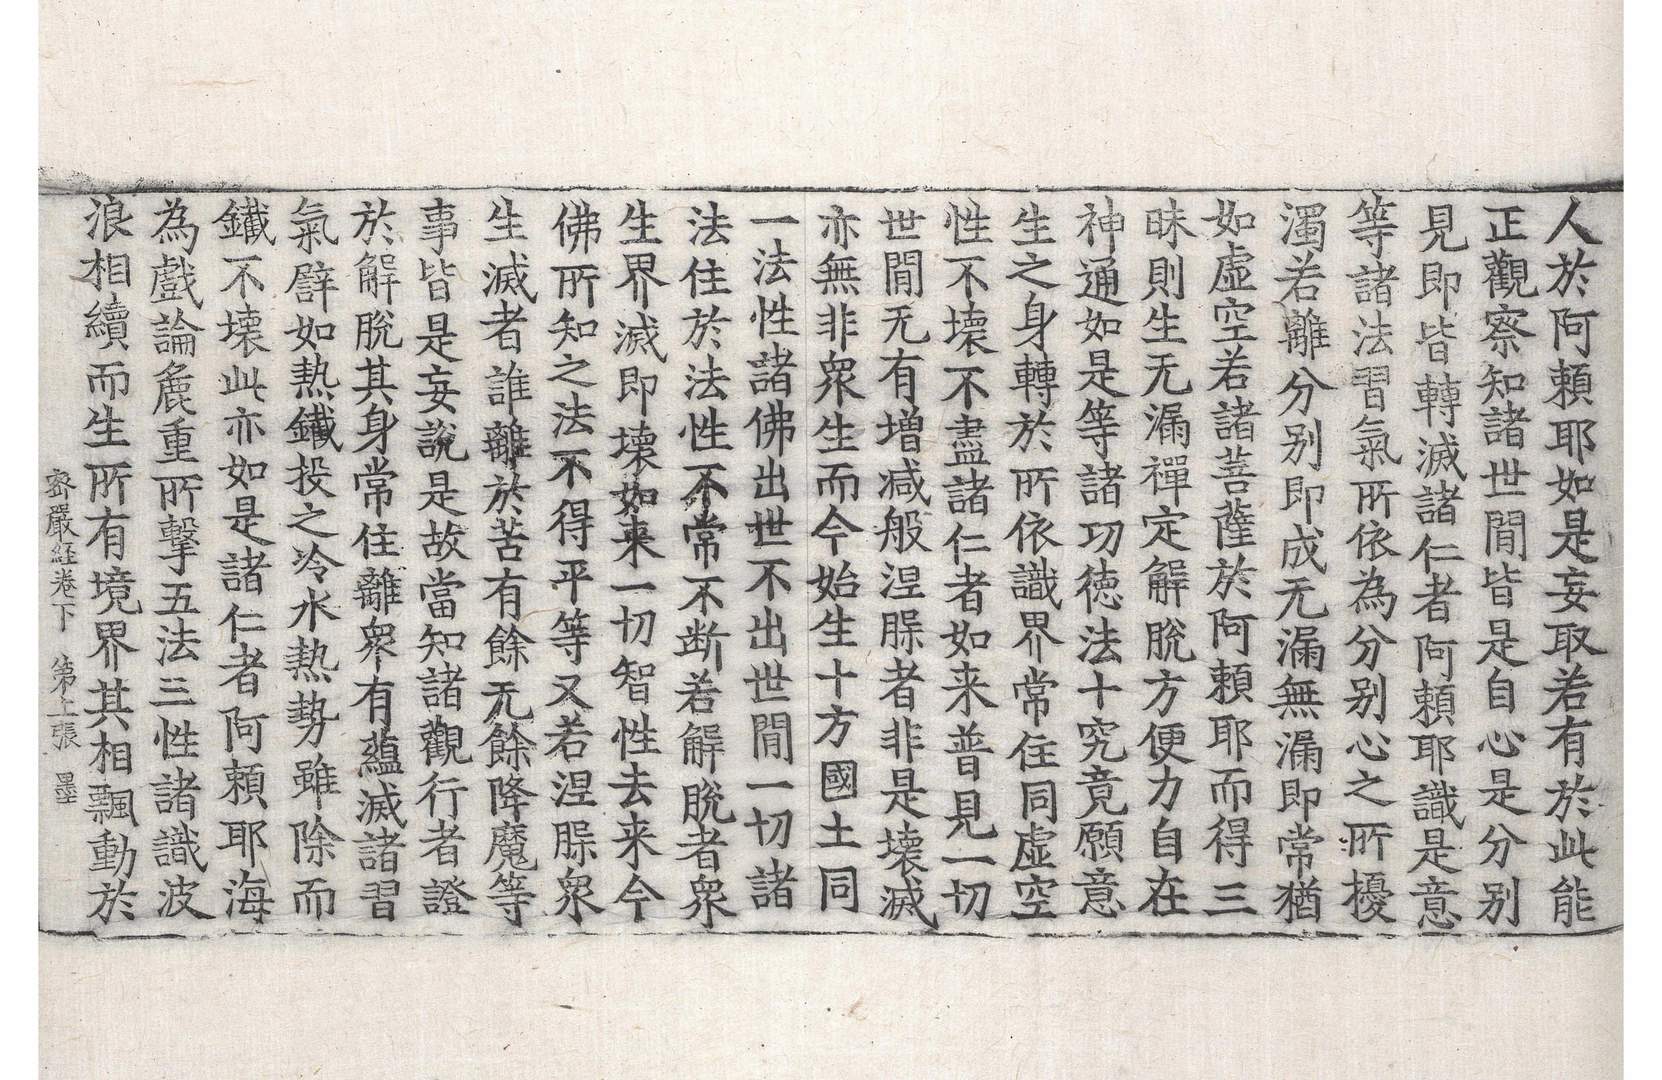 人於阿頼耶如是妄取若有於此能
正觀察知諸世間皆是自心是分别
見即皆轉滅諸仁者阿頼耶識是意
等諸法習氣所依為分别心之所擾
濁若離分别即成无漏無漏即常猶
如虛空若諸菩薩於阿頼耶而得三
昧則生无漏禪定解脫方便力自在
神通如是等諸功徳法十究竟願意
生之身轉於所依識界常住同虛空
性不壊不盡諸仁者如来普見一切
世間无有增减般涅㬿者非是壊滅
亦無非衆生而今始生十方國土同
一法性諸佛出世不出世間一切諸
法住於法性不常不断若解脫者衆
生界滅即壊如来一切智性去来今
佛所知之法不得平等又若涅㬿衆
生滅者誰離於苦有餘无餘降魔等
事皆是妄說是故當知諸觀行者證
於解脫其身常住離衆有蘊滅諸習
氣譬如熱鐵投之冷水熱勢雖除而
鐵不壊此亦如是諸仁者阿頼耶海
為戲論麁重所擊五法三性諸識波
浪相續而生所有境界其相飄動於
密嚴経卷下　第上張　墨